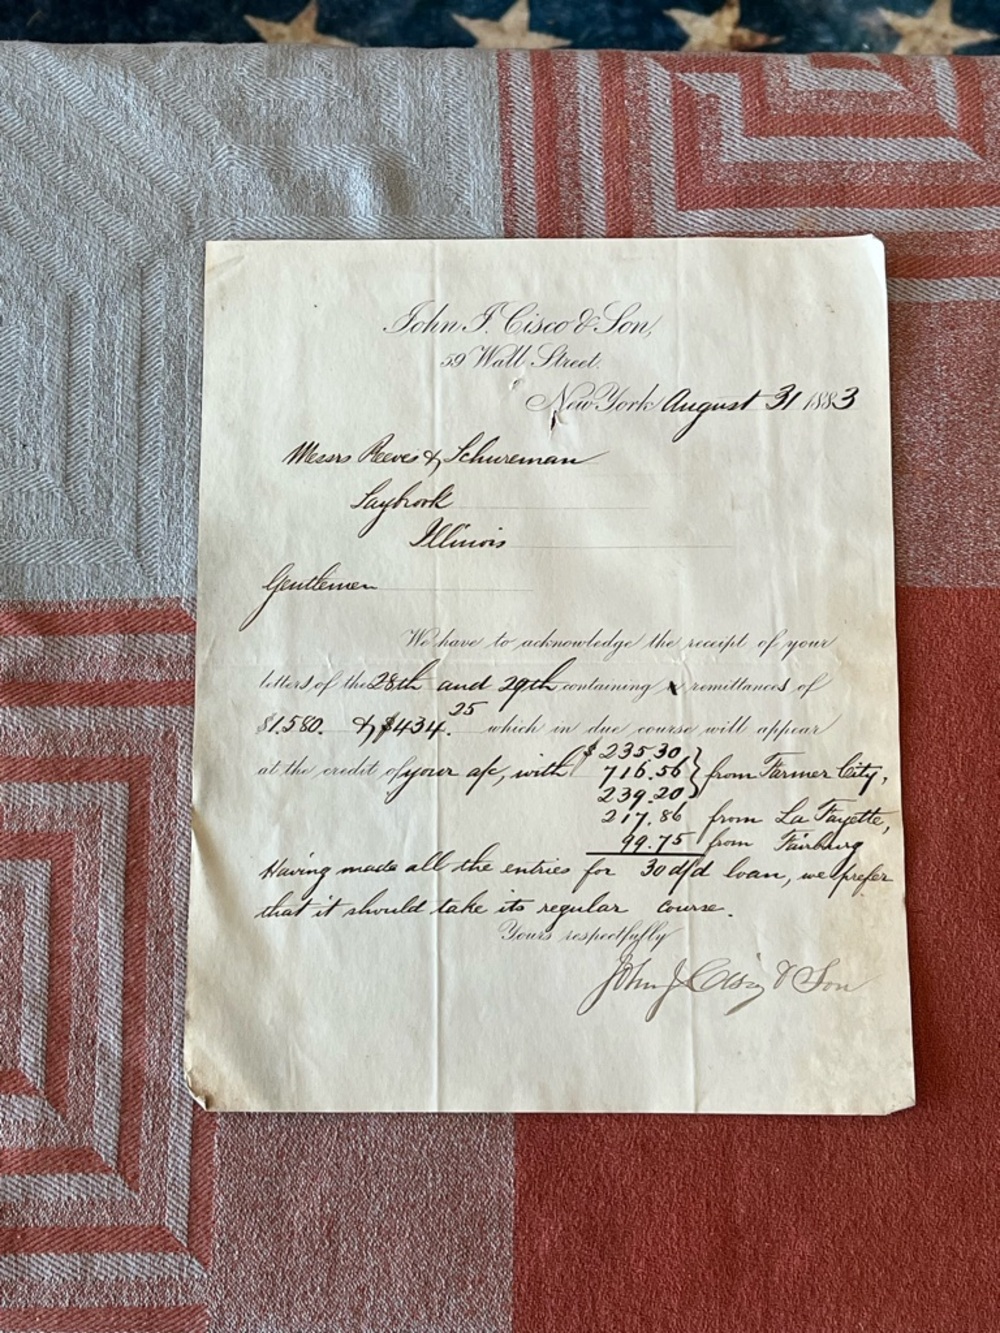 John J. Cisco & Son,
59 Wall Street.
New York August 31 1883
Messrs Reeves & Schureman
Saybrook
Illinois
Gentlemen
We have to acknowledge the receipt of your
letters of the 28th and 29th containing remittances of
$1.580. & $434.25 which in due course will appear
at the credit of your a/c, with $235.30
716.56 from Farmer City,
239.20
217.86 from La Fayette,
99.75 from Fairburg
Having made all the entries for 30 d/d loan, we prefer
that it should take its regular course.
Yours respectfully
John J. Cisco & Son